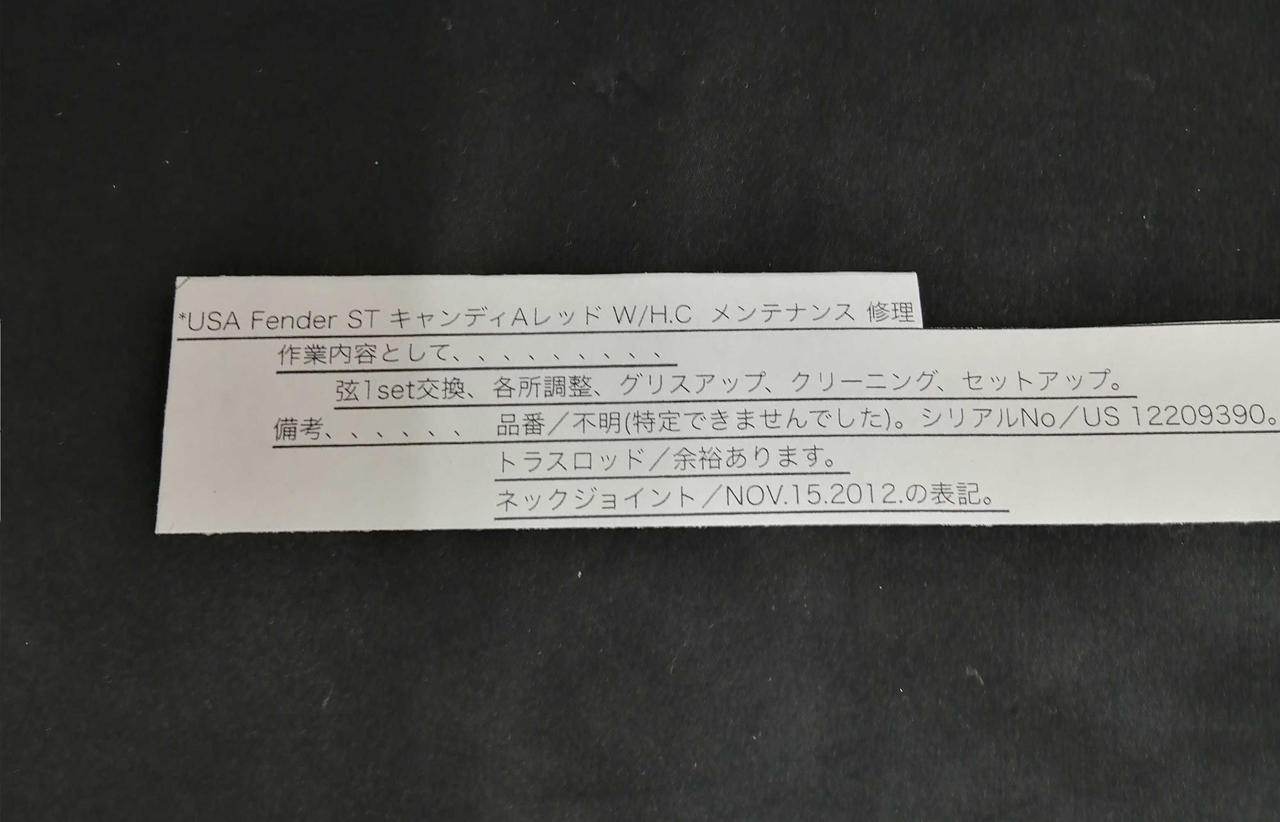 *USA Fender ST キャンディAレッド W/H.C メンテナンス 修理
作業内容として、、、、、、、、、
弦1set交換、各所調整、グリスアップ、クリーニング、セットアップ。
備考、、、、、、 品番/不明(特定できませんでした)。シリアルNo/US 12209390。
トラスロッド/余裕あります。
ネックジョイント/NOV.15.2012.の表記。